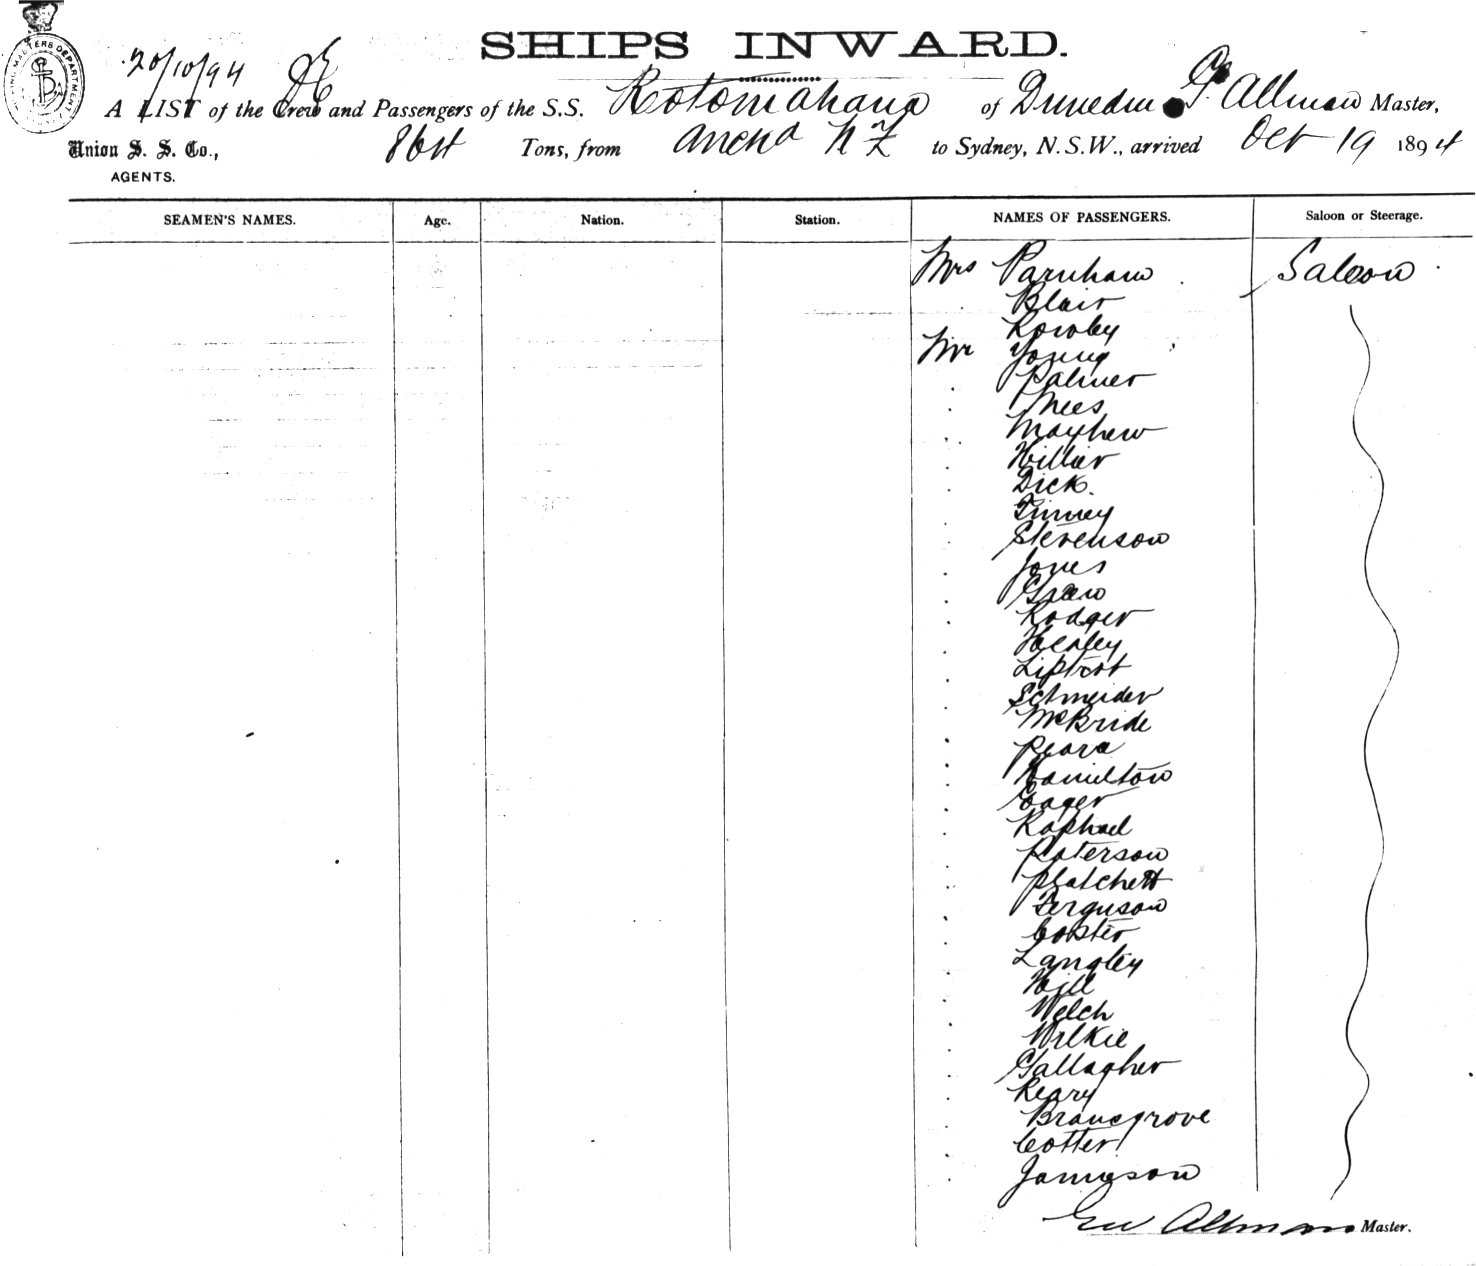 SHIPS INWARD.
20/10/94
A LIST of the Crew and Passengers of the S.S. Rotomahana of Dunedin G. Allman Master,
Union S. S. Co., 864 Tons, from Auckd N Z to Sydney, N.S.W., arrived Oct 19 1894
AGENTS.
SEAMEN'S NAMES. Age. Nation. Station. NAMES OF PASSENGERS. Saloon or Steerage.
Mrs Parnham Saloon
Blair
Rowley
Mr Young
Palmer
Mees
Mayhew
Hillier
Dick.
Finney
Stevenson
Jones
Rodger
Healey
Liptrot
Schneider
McBride
Hamilton
Eager
Raphael
Paterson
Platchett
Ferguson
Coster
Langley
Hill
Welch
Wilkie
Gallagher
Reary
Bransgrove
Cotter
Jamieson
Geo Allman Master.